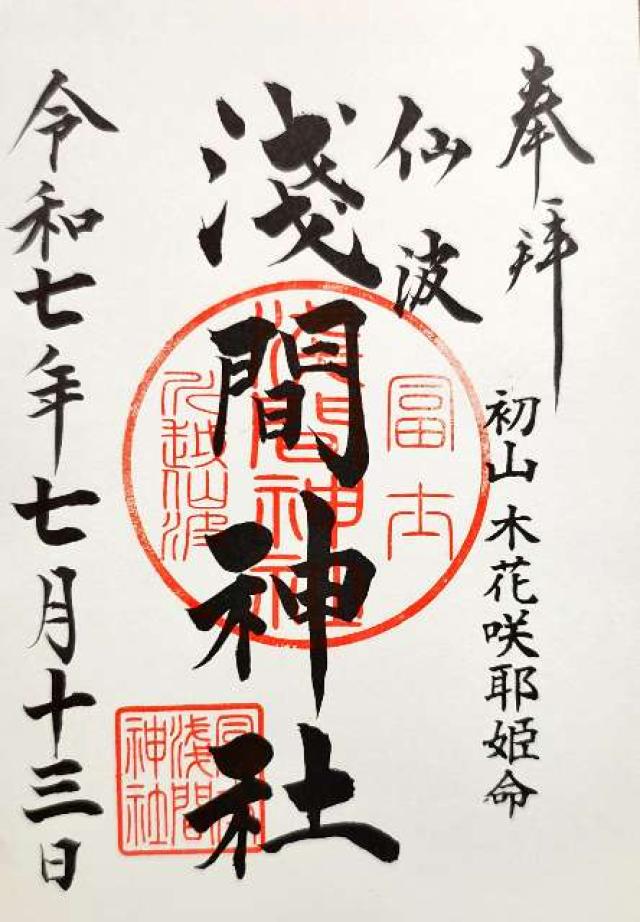 奉拝
初山木花咲耶姫命
仙波
淺間神社
冨士
淺間神社
川越仙波
淺間
神社
令和七年七月十三日